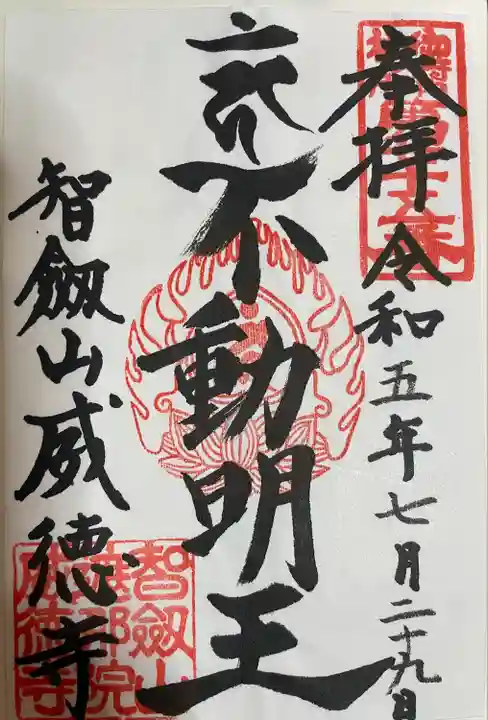 奉拝 令和五年七月二十九日
不動明王
智劔山威徳寺
智劔山
威徳寺